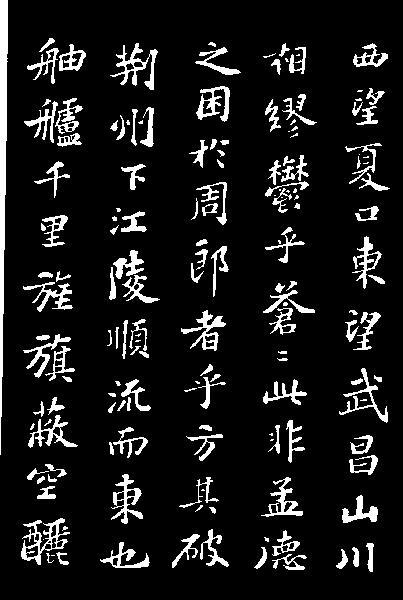 西望夏口東望武昌山川
相繆鬱乎蒼〻此非孟德
之困於周郎者乎方其破
荆州下江陵順流而東也
舳艫千里旌旗蔽空釃